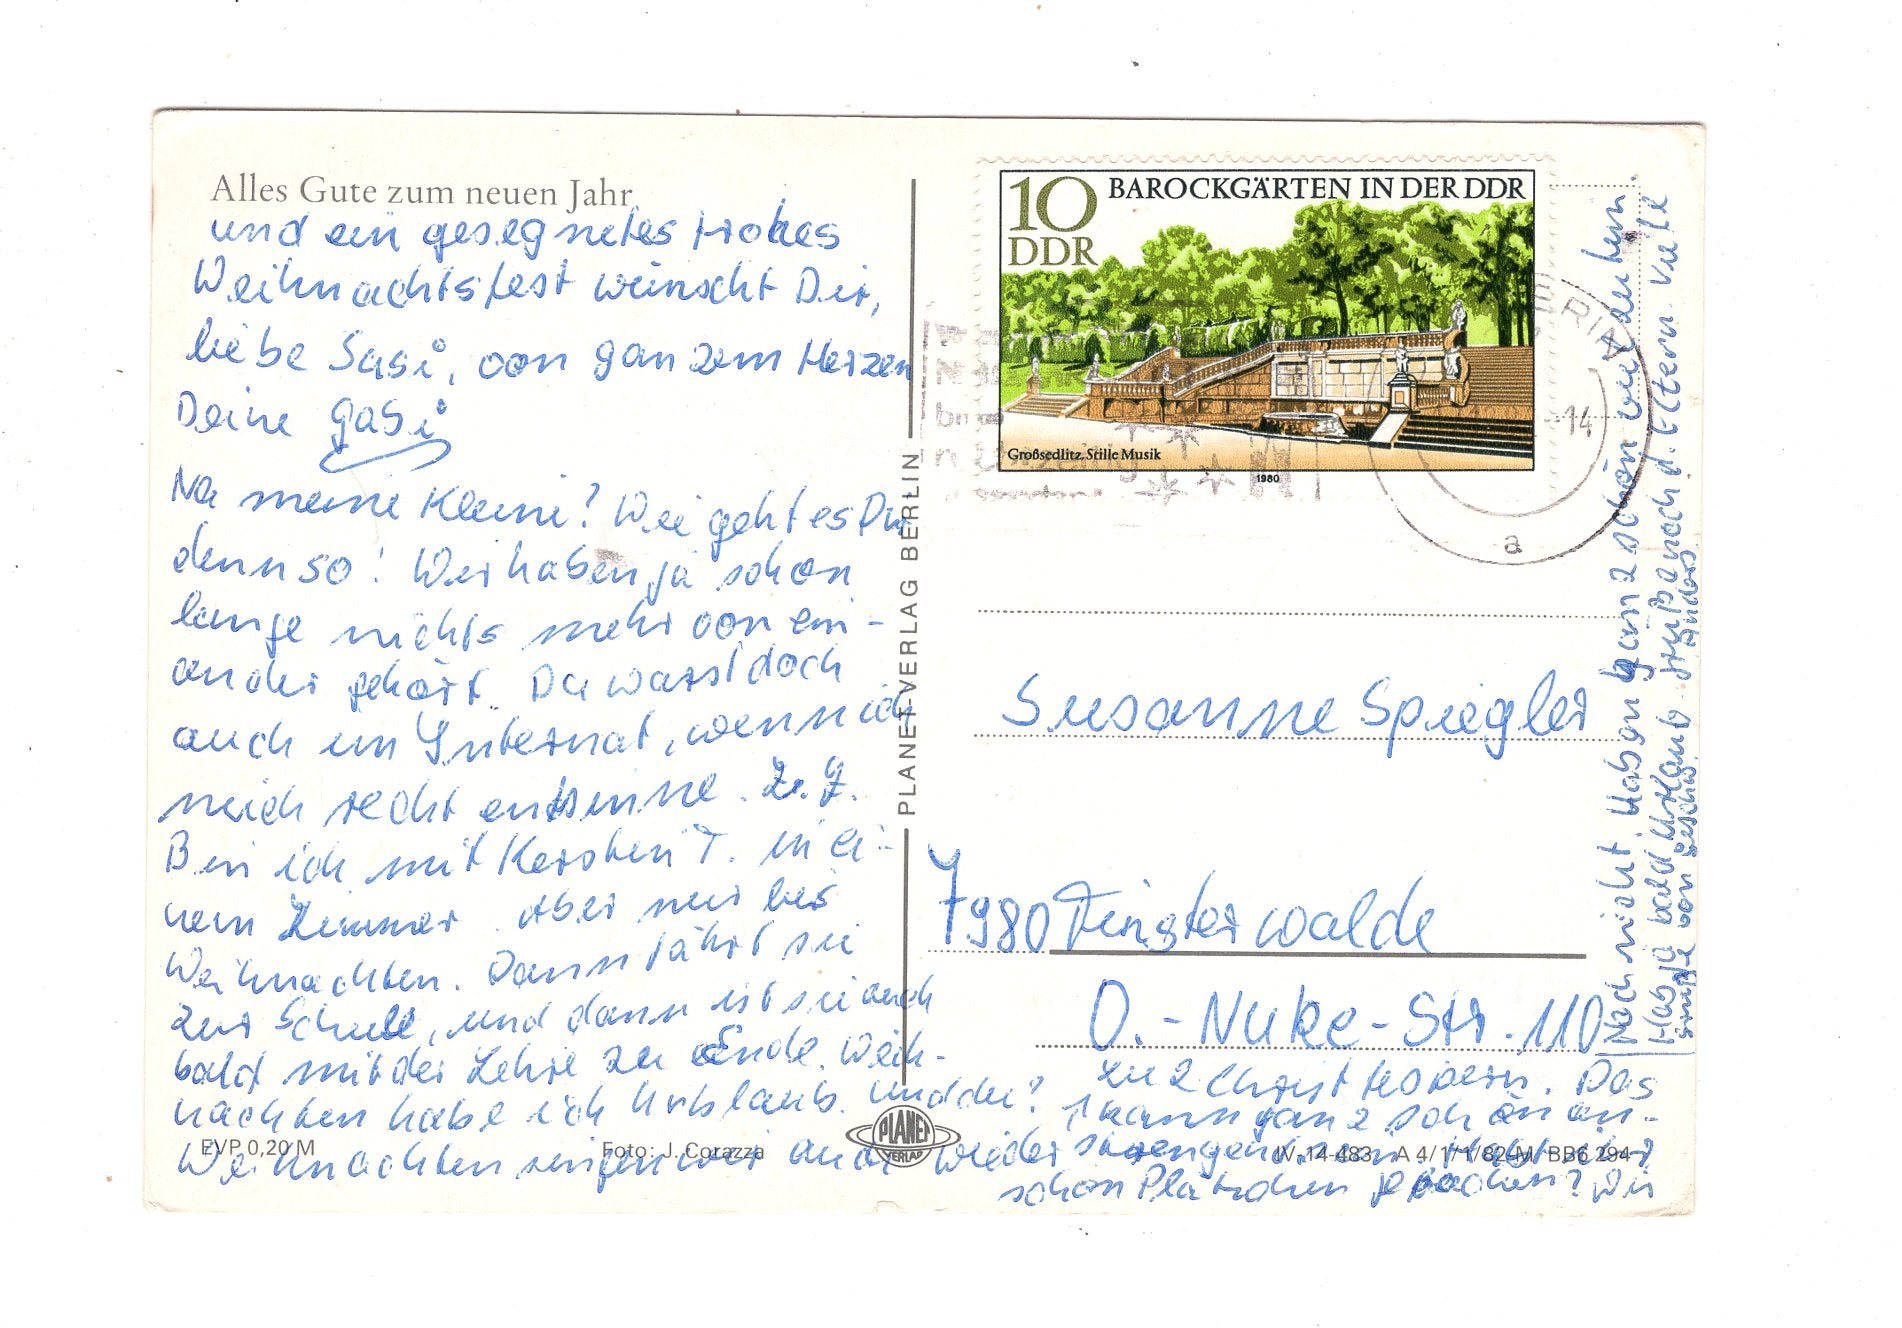 Alles Gute zum neuen Jahr
und ein gesegnetes frohes
Weihnachtsfest wünscht Dir,
liebe Susi, von ganzem Herzen
Deine Gabi
Na meine Kleine? Wie geht es Dir
denn so! Wir haben ja schon
lange nichts mehr von ein-
ander gehört. Du warst doch
auch im Internat, wenn ich
mich recht entsinne. Z. Z.
Bin ich mit Kerstin T. in ei-
nem Zimmer. Aber nur bis
Weihnachten. Dann fährt sie
zur Schule, und dann ist sie auch
bald mit der Lehre zu Ende. Weih-
nachten habe ich Urlaub. Und du?
Weihnachten singen wir auch wieder
zu 2 Christvespern. Das
kann ganz schön an-
strengend sein. Habt ihr
schon Plätzchen gebacken? Wir
Noch nicht. Haben ganz schön viel zu tun.
Hab ja bald Urlaub. Grüße noch d. Eltern viele
Grüße von
EVP 0,20 M
Foto: J. Corazza
PLANET-VERLAG BERLIN
PLANET
VERLAG
IV-14-483 A 4/1/1/82-M BB6 294
10
DDR
BAROCKGÄRTEN IN DER DDR
Großsedlitz, Stille Musik
1980
-14
a
Susanne Spiegler
7980 Finsterwalde
O.-Nuke-Str. 110